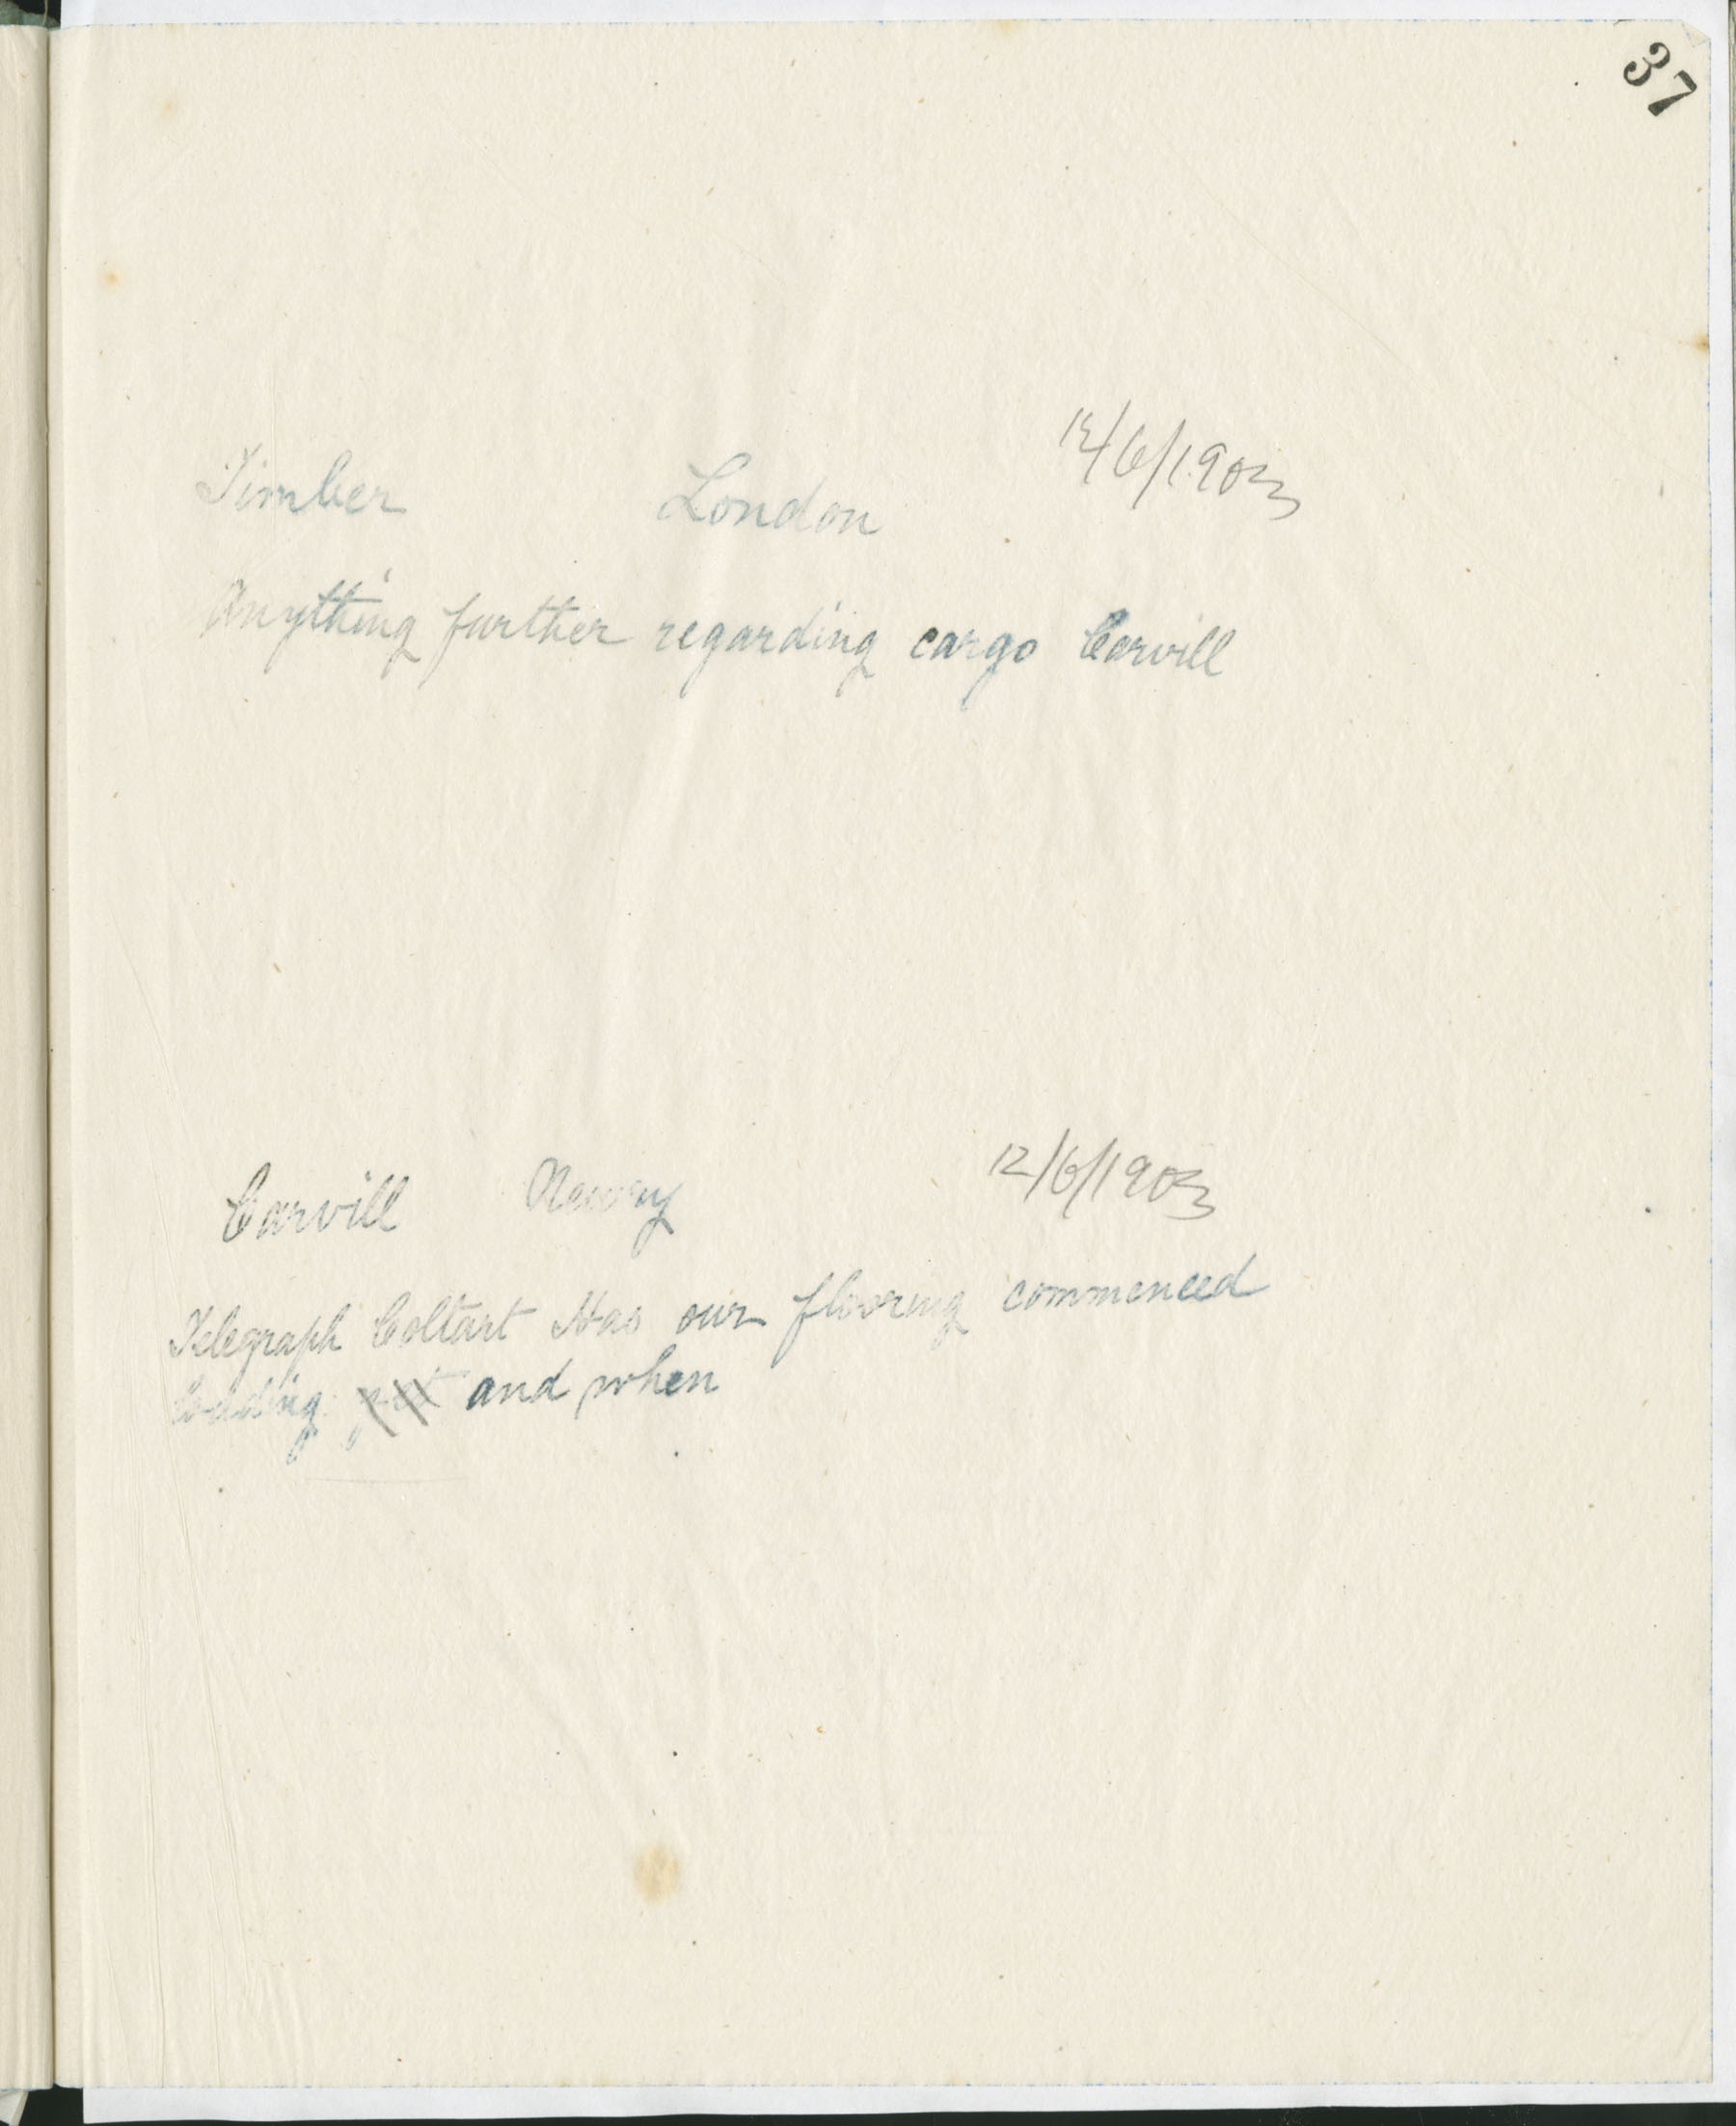 37
12/6/1903
Timber London
Anything further regarding cargo Carvill
Carvill Newry 12/6/1903
Telegraph Coltart Has our flooring commenced
loading yet and when